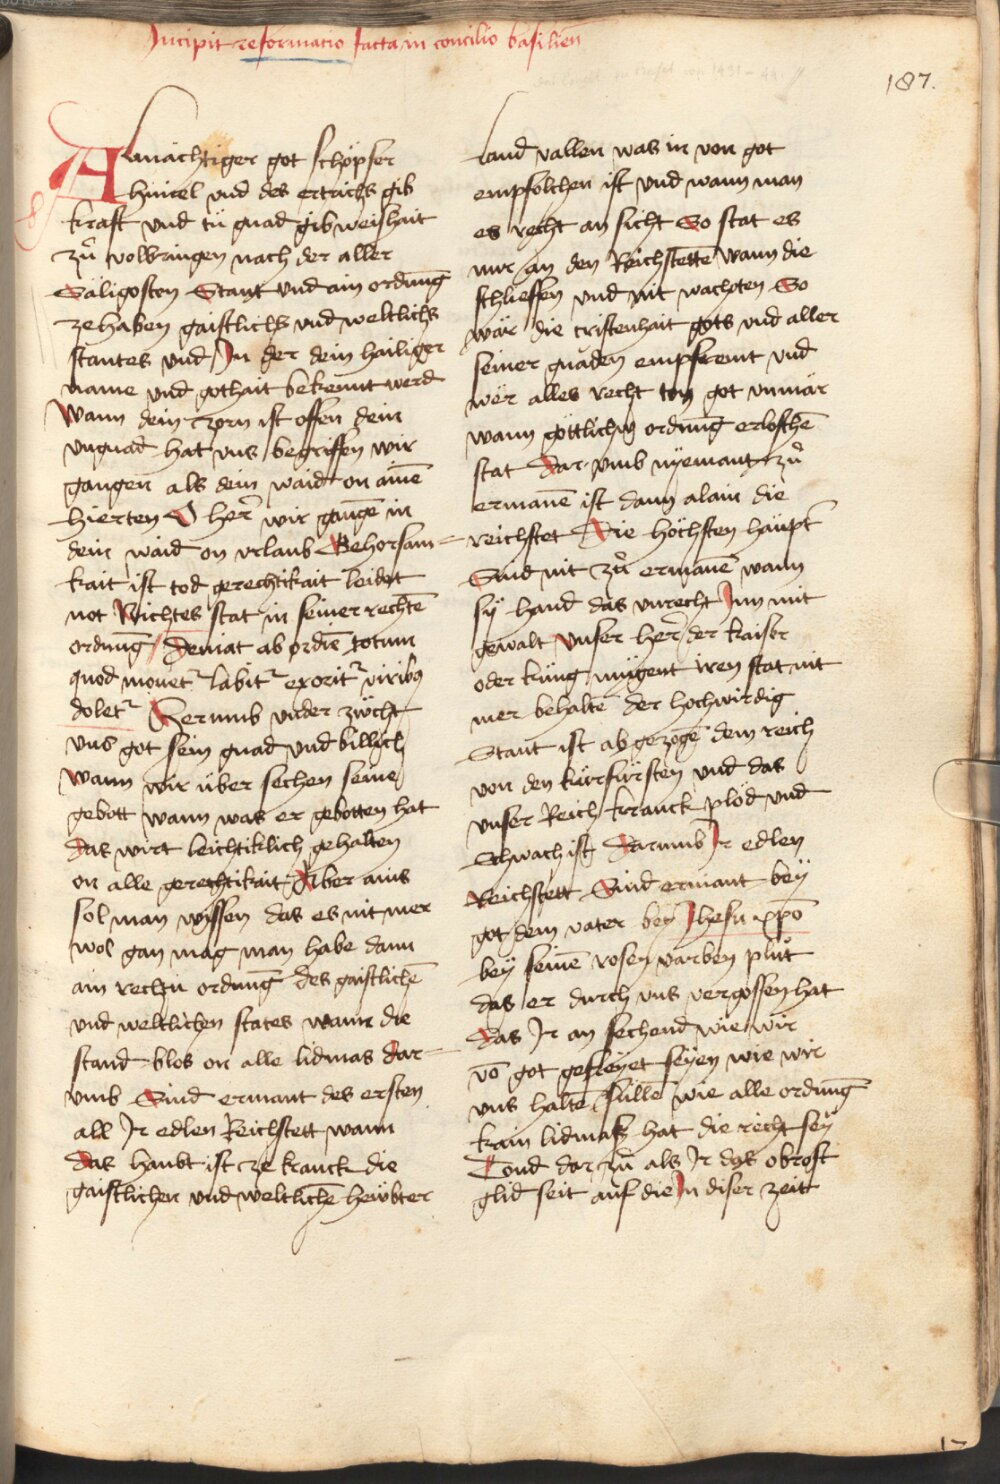 Incipit reformacio facta in concilio basilien̄
187.
Almächtiger got schöpfer
himel vnd des ertrichs gib
kraft vnd tů gnad gib weishait
zů volbringen nach der aller
Säligosten Stant vnd ain ordnūg
ze haben gaistlichs vnd weltlichs
stantes vnd In der dein hailiger
name vnd gothait bekennt werd
Wann dein zorn ist offen dein
vngnad hat vns begriffen wir
gangen als dein waid on ainē
hierten O her̄ wir gangē in
dein waid on vrlaub Gehorsam=
kait ist tod gerechtikait leidet
not Nichtes stat in seiner rechtē
ordnūg / deuiat ab ordīe totum
quod mouet᷑ labit᷑ exorit᷑ viribꝫ
dolet᷑ Darumb vnder zücht
vns got sein gnad vnd billich
Wann wir über sechen seine
gebott wann was er gebotten hat
das wirt leichtiklich gehalten
on alle gerechtikait Aber ains
sol man wissen das es nit mer
wol gan mag man habe dann
ain rechtn ordnūg des gaistlichē
vnd weltlichen states wann die
stand blos on alle lidmas dar=
vmb Sind ermant des ersten
all Ir edlen Reichstett wann
das haubt ist ze kranck die
gaistlichen vnd weltlichē heübter
land vallen was in von got
empfolchen ist vnd wann man
es recht an sicht So stat es
nur an den Reichstettē wann die
schlieffen vnd nit wachten So
wär die cristenhait gots vnd aller
seiner gnaden empfremt vnd
wer alles recht ton got vnmär
wann göttlichū ordnūg erloschē
stat dar vmb nyemant zů
ermanē ist dann alain die
reichstet Die höchsten häupt
Sind nit zů ermanē wann
sÿ hand das vnrecht Inn mit
gewalt Vnser her̄ der kaiser
oder küng mügent iren stat nit
mer behaltē der hochwirdig
Stant ist ab gezogē dem reich
von den kürfürsten vnd das
vnser Reich kranck plöd vnd
Schwach ist darumb Ir edlen
Reichstett Sind ermant beÿ
got dem vater beÿ Ihesu xpō
beÿ seinē rosen varben plůt
das er durch vns vergossen hat
das Ir an sechend wie wir
vō got gefreyet seyen wie wir
vns haltē sullē wie alle ordnūg
kain lidmaß hat die recht seÿ
Tond dar zů als Ir das obrost
glid seit auf die In diser zeitt